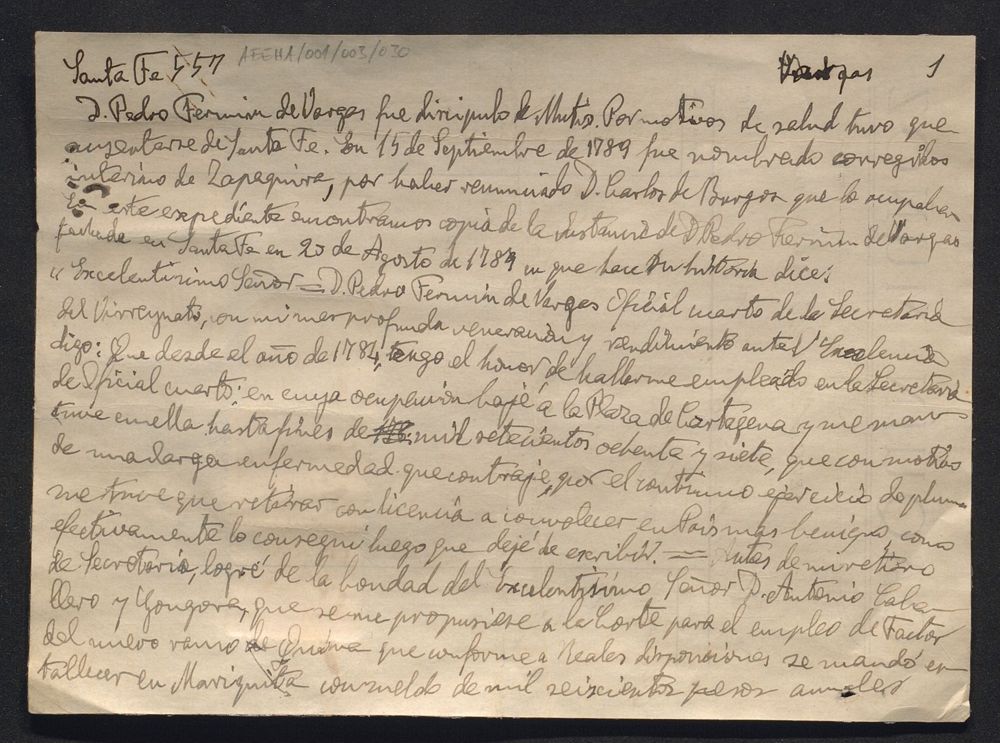 Santa Fe 557 AEEHA/001/003/030 Vargas 1
D. Pedro Fermin de Vargas fue discipulo de Mutis. Por motivos de salud tuvo que
ausentarse de Santa Fe. En 15 de Septiembre de 1789 fue nombrado corregidor
interino de Zapaquira, por haber renunciado D. Carlos de Burgos que lo ocupaba.
En este expediente encontramos copia de la instancia de D Pedro Fermin de Vargas
fechada en Santa Fe en 20 de Agosto de 1789 en que hace su historia dice:
"Excelentisimo Señor = D. Pedro Fermin de Vargas Oficial cuarto de la Secretaria
del Virreynato, con mi mas profunda veneracion y rendimiento ante V Excelencia
digo: Que desde el año de 1784, tengo el honor de hallarme empleado en la Secretaria
de Oficial cuarto; en cuya ocupacion bajé a la Plaza de Cartagena y me man
tuve en ella hasta fines de mil setecientos ochenta y siete, que con motivo
de una larga enfermedad que contraje, por el continuo ejercicio de pluma
me tuve que retirar con licencia a convalecer en Pais mas benigno, como
efectivamente lo consegui luego que dejé de escribir. = Antes de mi retiro
de Secretaria, logré de la bondad del Excelentisimo Señor D. Antonio Caba-
llero y Gongora, que se me propusiese a la Corte para el empleo de Factor
del nuevo ramo de Quina que conforme a Reales disposiciones se mandó es
tablecer en Mariquita con sueldo de mil seiscientos pesos anuales